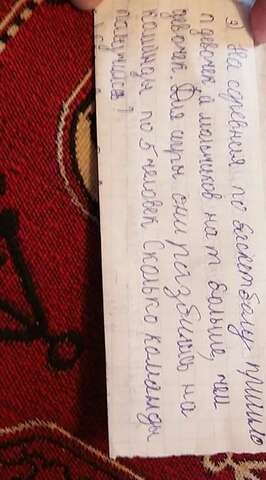 3) На соревнея по баскетболу пришло
n девочек а мальчиков на m больше, чем
девочек. Для игры они разбились на
команды по 5 человек Сколько команды
получилось?